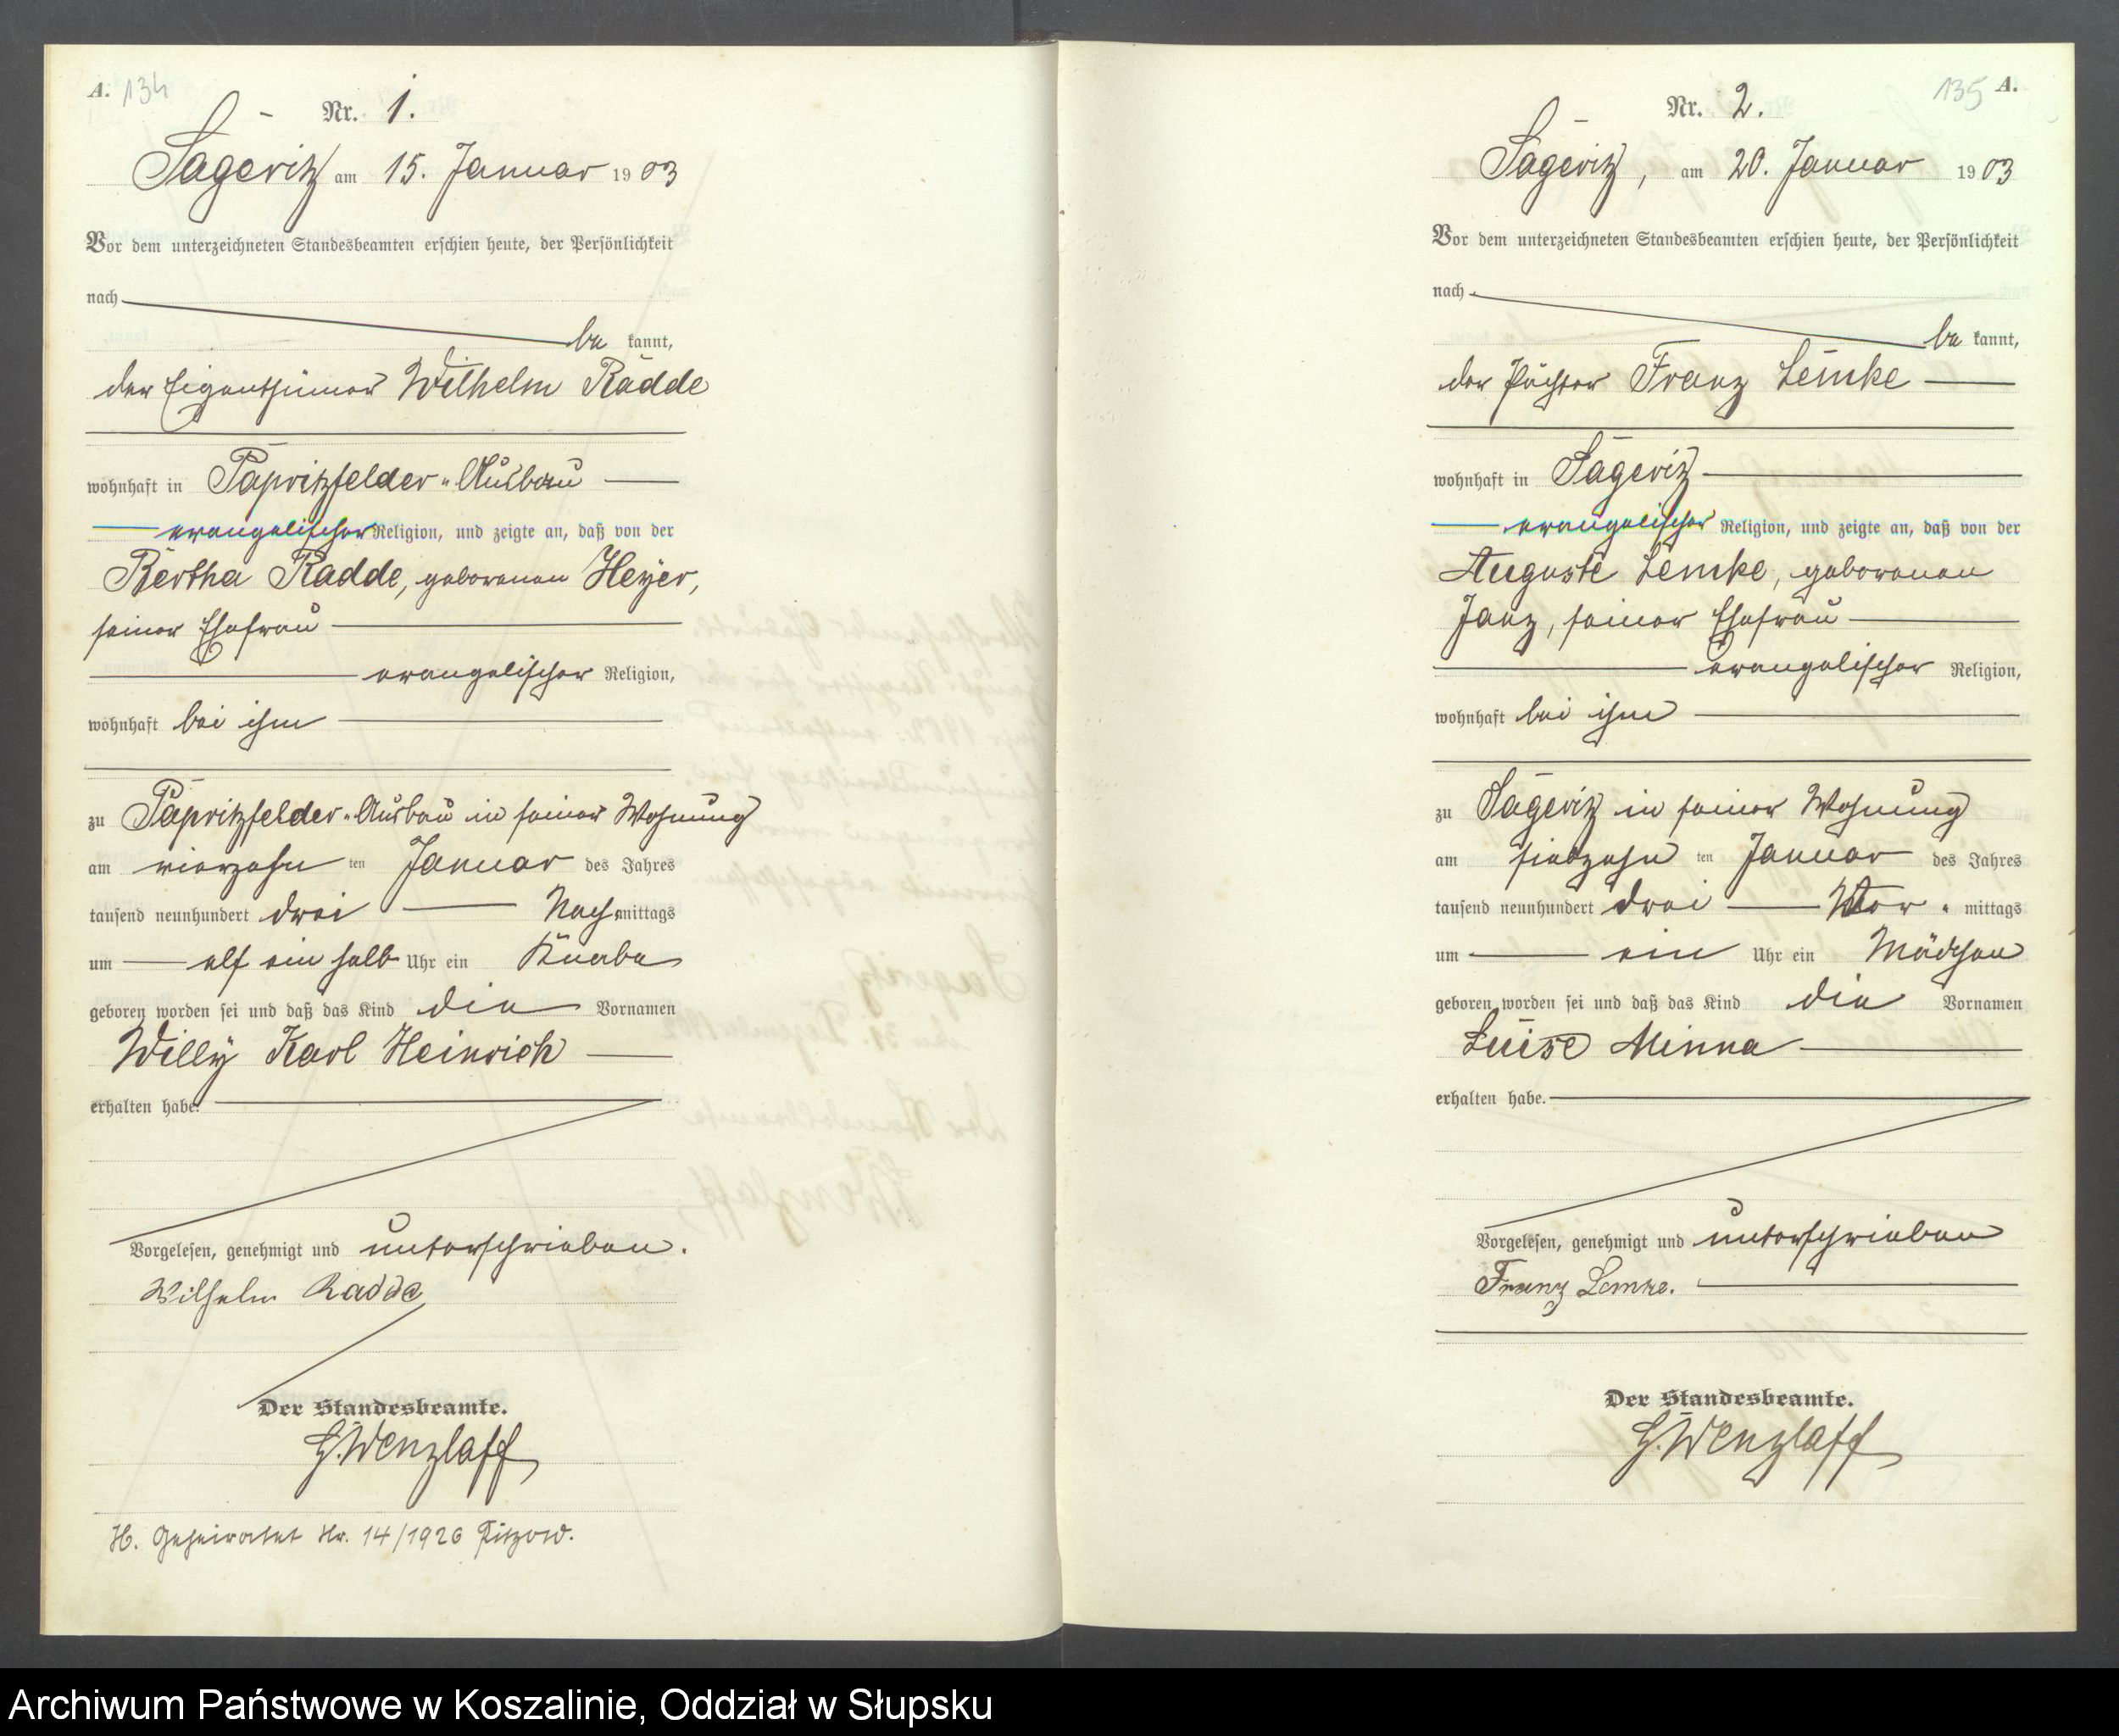 A. 134
Nr. 1.
Sageritz am 15. Januar 1903
Vor dem unterzeichneten Standesbeamten erschien heute, der Persönlichkeit
nach
be kannt,
der Eigenthümer Wilhelm Radde
wohnhaft in Papritzfelder-Ausbau
evangelischer Religion, und zeigte an, daß von der
Bertha Radde, geborenen Heyer,
seiner Ehefrau
evangelischer Religion,
wohnhaft bei ihm
zu Papritzfelder-Ausbau in seiner Wohnung
am vierzehn ten Januar des Jahres
tausend neunhundert drei Nach mittags
um elf ein halb Uhr ein Knabe
geboren worden sei und daß das Kind die Vornamen
Willy Karl Heinrich
erhalten habe.
Vorgelesen, genehmigt und unterschrieben.
Wilhelm Radde
Der Standesbeamte.
G. Wenzlaff
H. Geheiratet Nr. 14/1926
135 A.
Nr. 2.
Sageritz, am 20. Januar 1903
Vor dem unterzeichneten Standesbeamten erschien heute, der Persönlichkeit
nach
be kannt,
der Pächter Franz Lemke
wohnhaft in Sageritz
evangelischer Religion, und zeigte an, daß von der
Auguste Lemke, geborenen
Janz, seiner Ehefrau
evangelischer Religion,
wohnhaft bei ihm
zu Sageritz in seiner Wohnung
am siebzehn ten Januar des Jahres
tausend neunhundert drei Vor mittags
um ein Uhr ein Mädchen
geboren worden sei und daß das Kind die Vornamen
Luise Minna
erhalten habe.
Vorgelesen, genehmigt und unterschrieben
Franz Lemke.
Der Standesbeamte.
G. Wenzlaff
Archiwum Państwowe w Koszalinie, Oddział w Słupsku